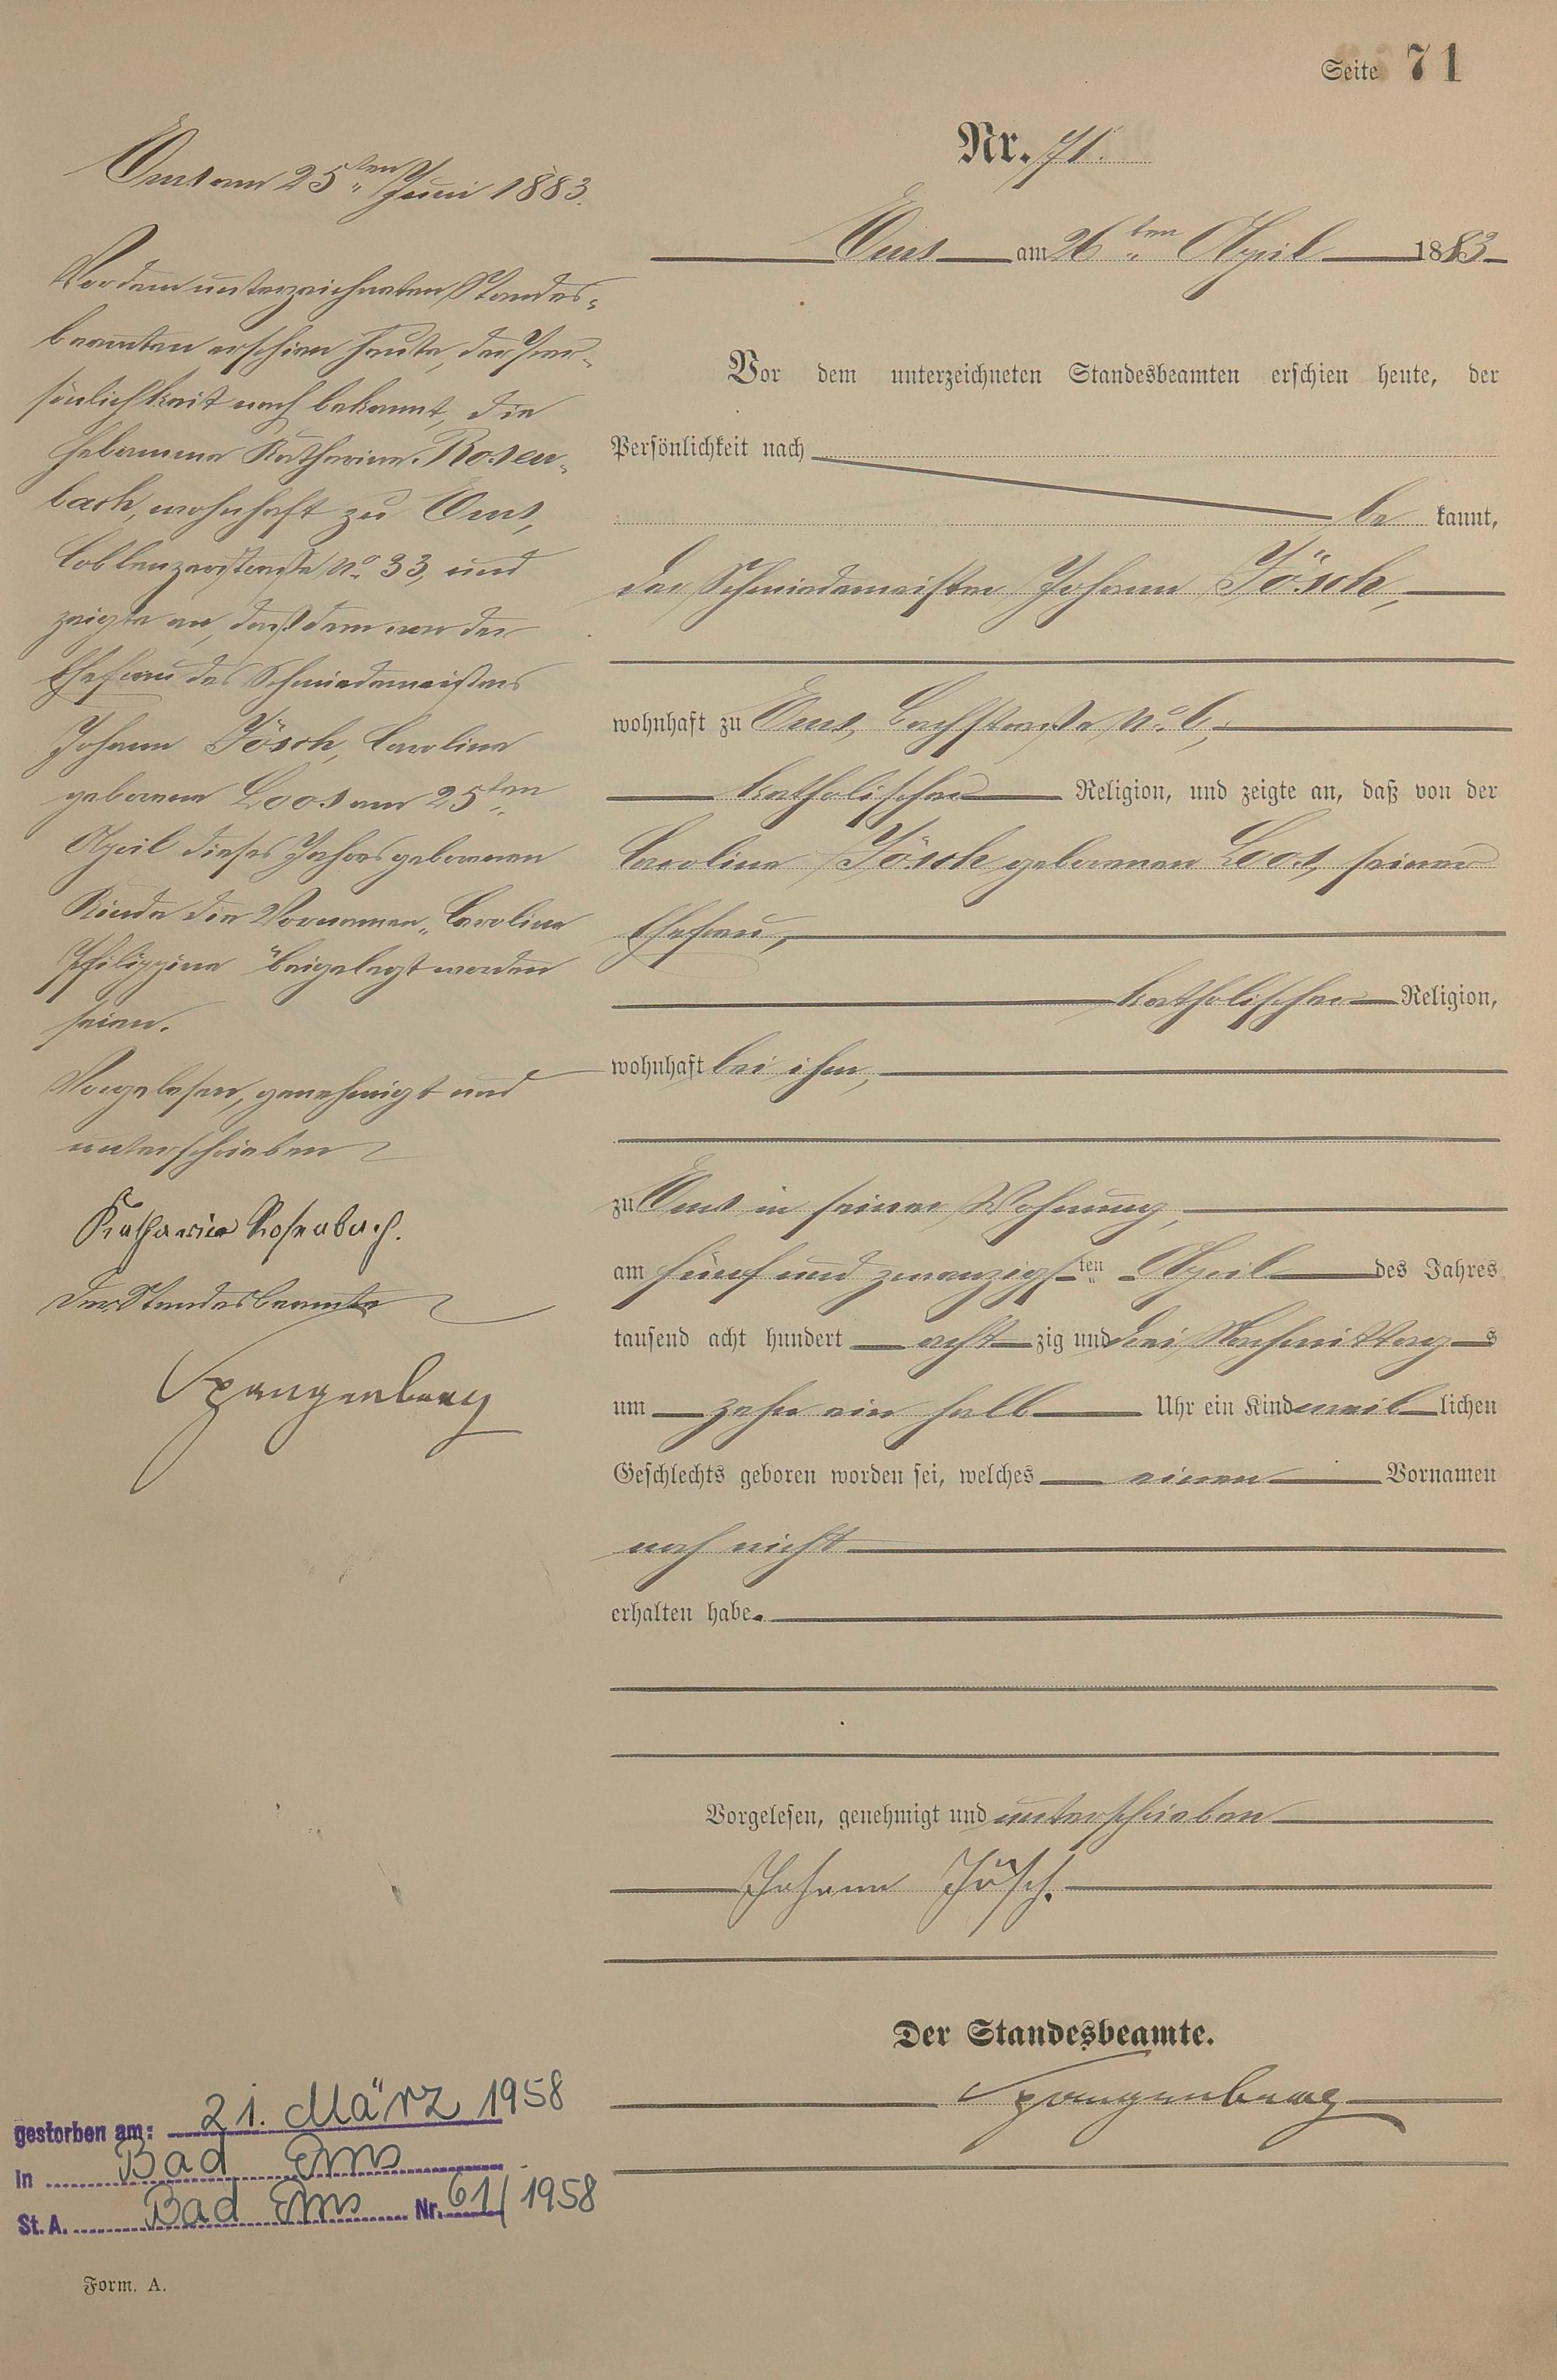 Seite 71
Nr. 71.
Ems am 26ten April 1883
Vor dem unterzeichneten Standesbeamten erschien heute, der
Persönlichkeit nach
be kannt,
der Schmiedemeister Johann Jösch,
wohnhaft zu Ems, Bachstraße No. 6,
katholischer Religion, und zeigte an, daß von der
Caroline Jösch geborenen Loos, seiner
Ehefrau,
katholischer Religion,
wohnhaft bei ihm,
zu Ems in seiner Wohnung,
am fünf und zwanzigsten April des Jahres
tausend acht hundert acht zig und drei Nachmittags
um zehn ein halb Uhr ein Kind weiblichen
Geschlechts geboren worden sei, welches einen Vornamen
noch nicht
erhalten habe.
Vorgelesen, genehmigt und unterschrieben
Johann Jösch.
Der Standesbeamte.
Spangenberg
Ems am 25ten Juni 1883.
Vor dem unterzeichneten Standes-
beamten erschien heute, der Per-
sönlichkeit nach bekannt, die
Hebamme Katharina Rosen-
bach, wohnhaft zu Ems,
Coblenzerstraße No. 33, und
zeigte an, daß dem von der
Ehefrau des Schmiedemeisters
Johann Jösch, Caroline
geborene Loos am 25ten
April dieses Jahres geborenen
Kinde die Vornamen „Caroline
Philippine“ beigelegt worden
seien.
Vorgelesen, genehmigt und
unterschrieben
Katharina Rosenbach.
Der Standesbeamte
Spangenberg
gestorben am: 21. März 1958
in Bad Ems
St. A. Bad Ems Nr. 61/1958
Form. A.